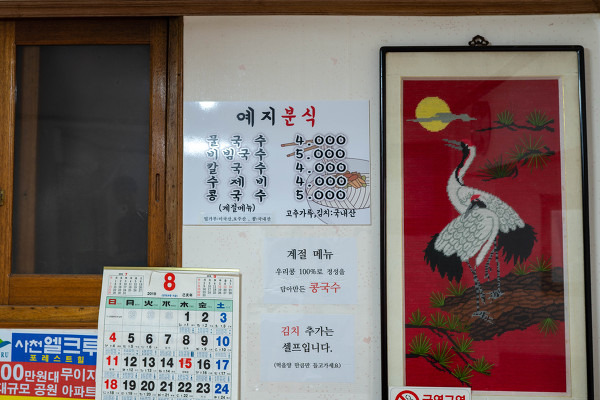 예지분식
물국수 4.000
비빔국수 5.000
칼국수 4.000
수제비 4.000
콩국수 5.000
(계절메뉴)
고추가루,김치:국내산
계절 메뉴
우리콩 100%로 정성을
담아만든 콩국수
김치 추가는
셀프입니다.
(먹을만 만큼만 들고가세요)
8
2019
日 月 火 水 木 金 土
1 2 3
4 5 6 7 8 9 10
11 12 13 14 15 16 17
18 19 20 21 22 23 24
사천 엘크루
포레스트힐
00만원대 무이자
대규모 공원 아파트
금연구역